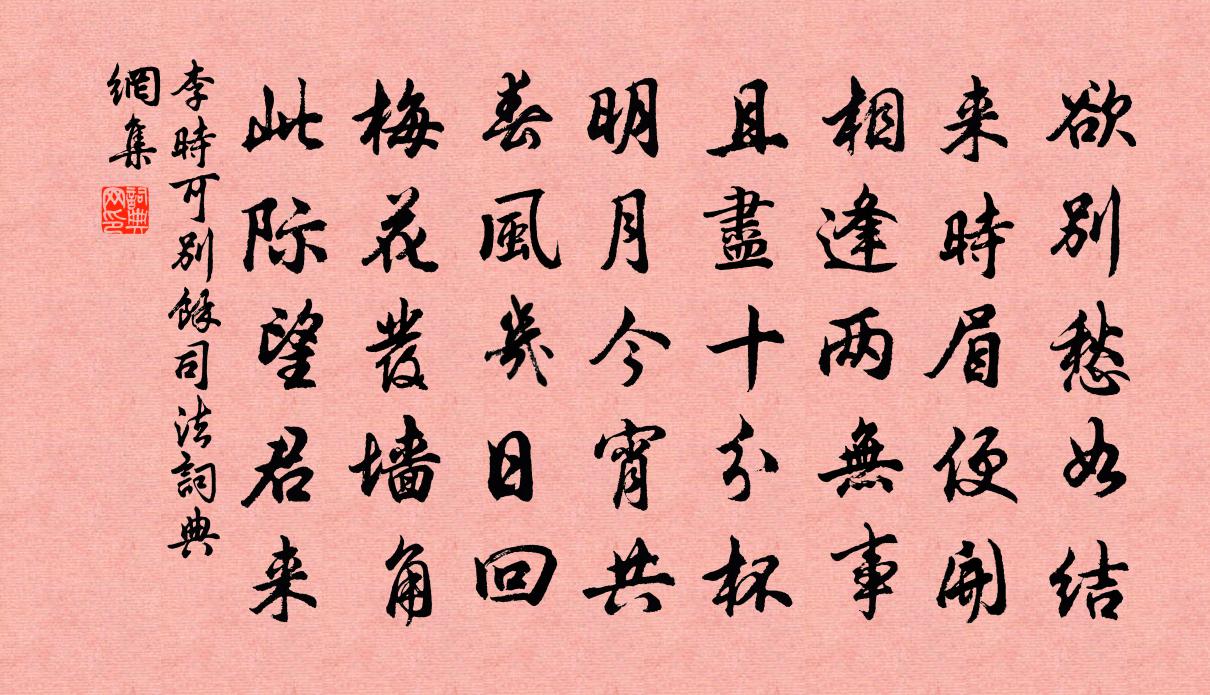 欲別愁如结
来時眉便開
相逢两無事
且盡十分杯
明月今宵共
春風幾日回
梅花發墙角
此际望君来
李時可別餘司法詞典
網集
詞典
网印